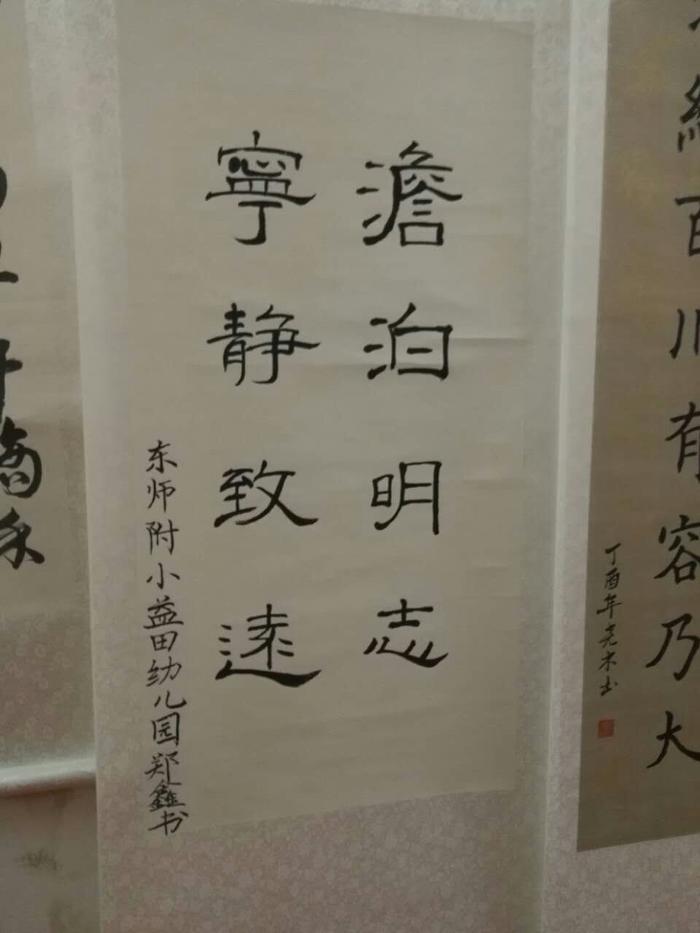 纳百川有容乃大
丁酉年
澹泊明志
寧静致遠
东师附小益田幼儿园郑鑫书